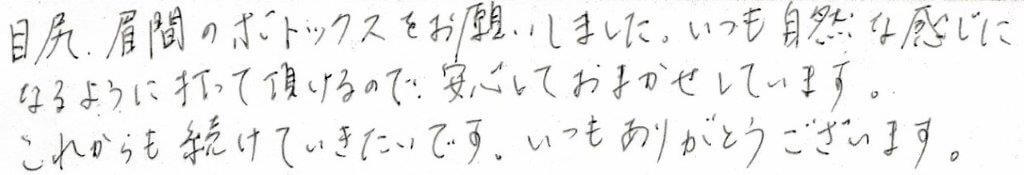 目尻、眉間のボトックスをお願いしました。いつも自然な感じに
なるように打って頂けるので、安心しておまかせしています。
これからも続けていきたいです。いつもありがとうございます。